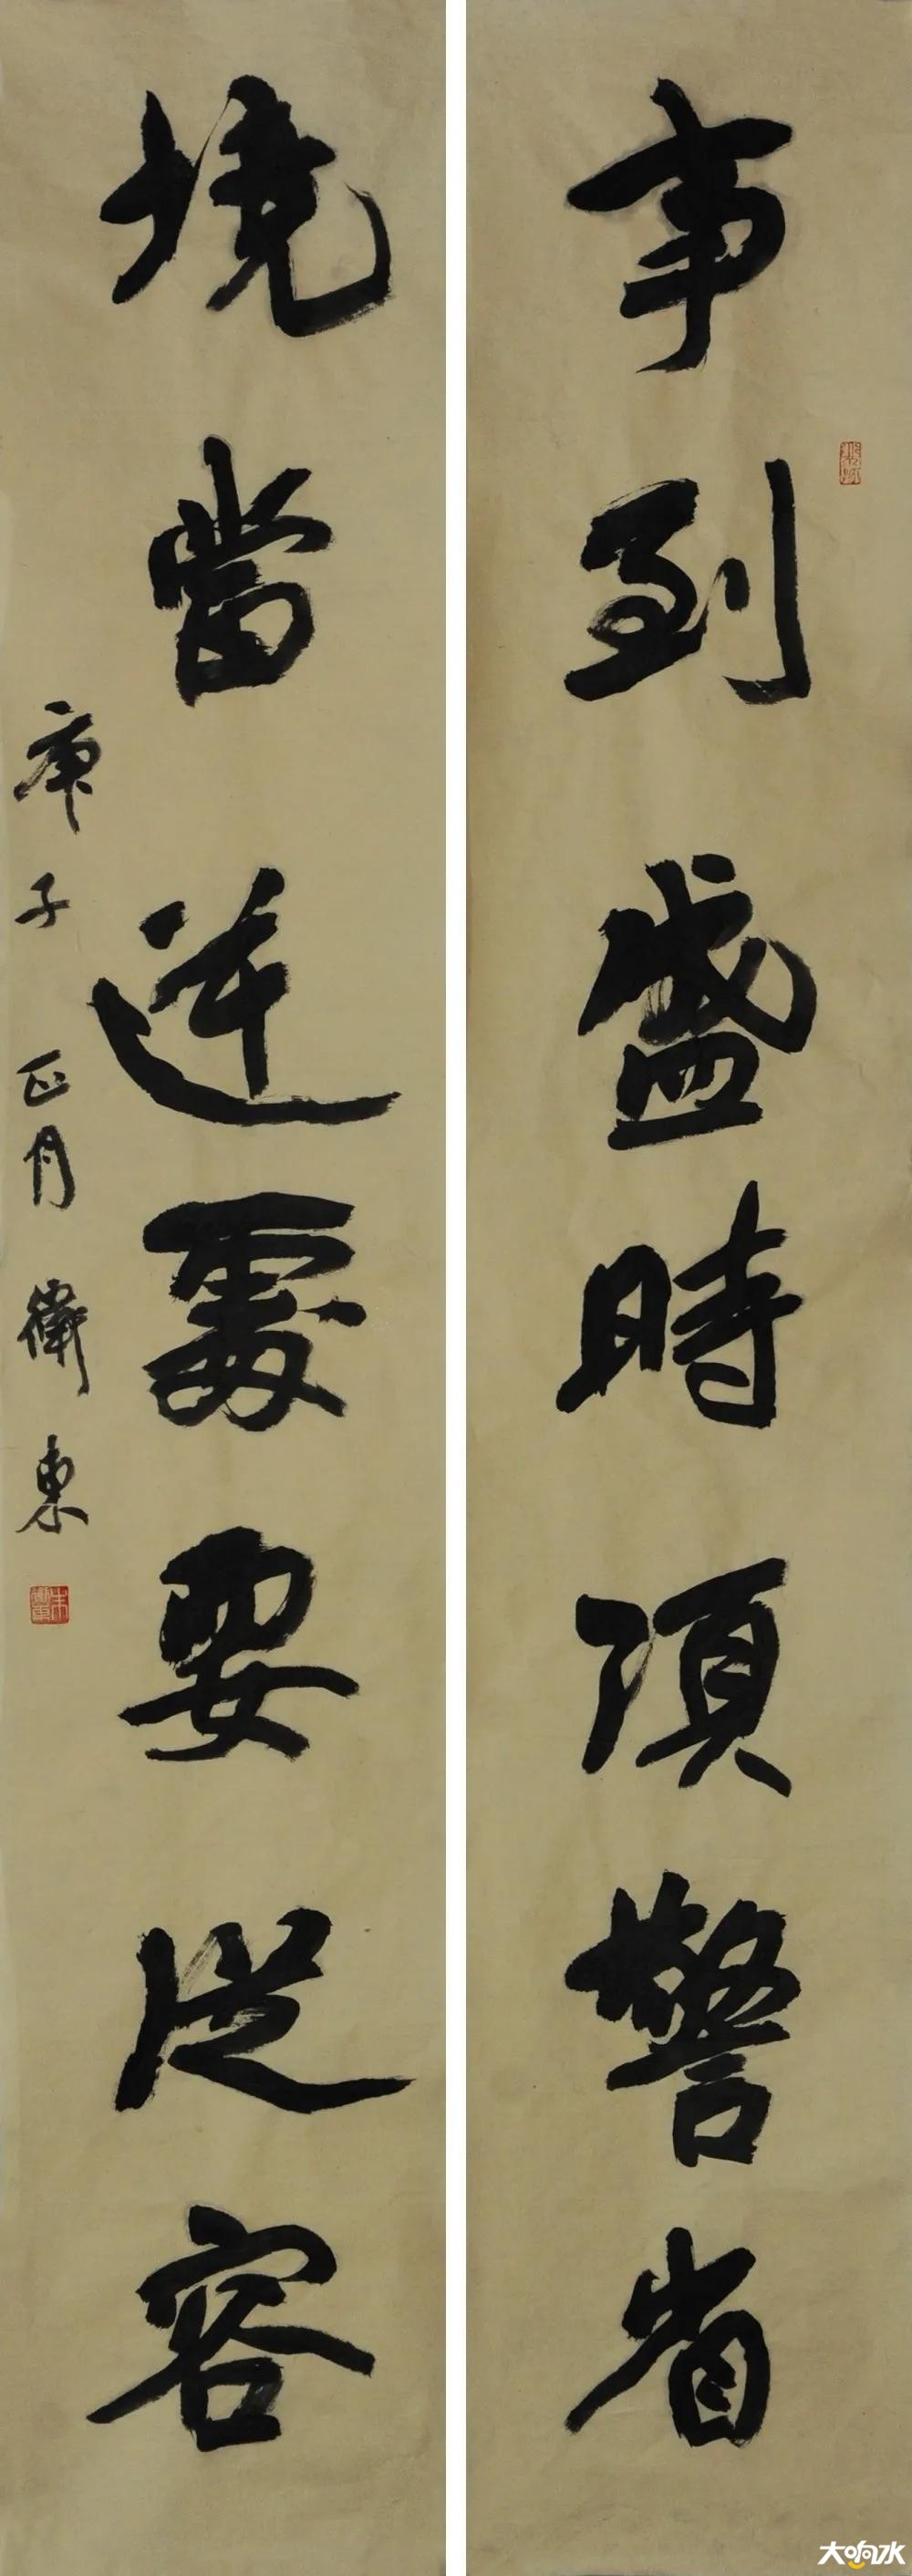 事到盛時須警省
境當逆處要從容
庚子正月衛東
大响水